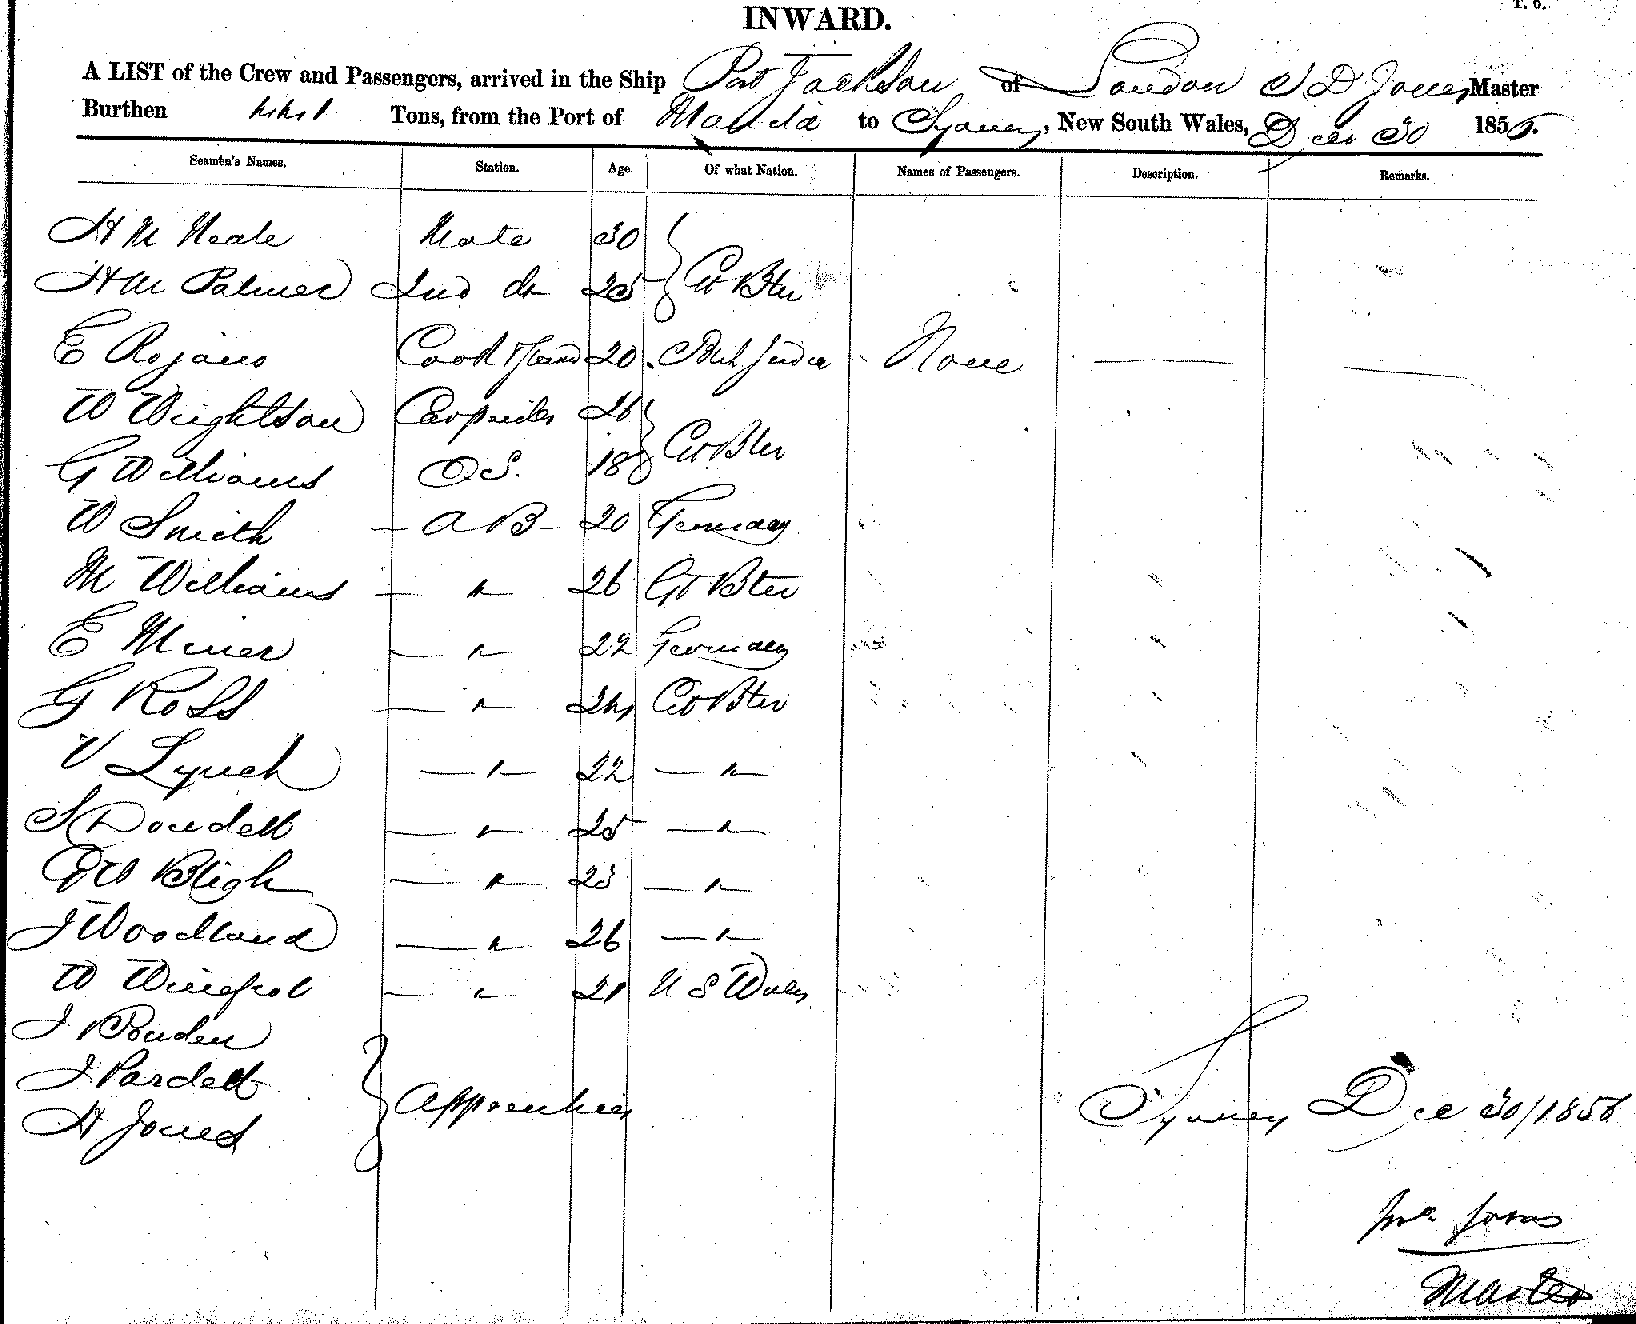 T. 6.
INWARD.
A LIST of the Crew and Passengers, arrived in the Ship Port Jackson of London J D Jones Master
Burthen Tons, from the Port of Manila to Sydney, New South Wales, Dec 30 1856.
Seamen's Names. Station. Age. Of what Nation. Names of Passengers. Description. Remarks.
H M Neale Mate 30
H M Palmer 2nd do 25 Gt Bter
E Rojano Cook 20 None
W Wrightson Carpenter 26
G Williams O S. 18 Gt Bter
W Smith A B 20 Germany
M Williams " 26 Gt Bter
E Miner " 22 Germany
G Ross " 24 Gt Bter
V Lynch " 22 "
S Dowdell " 25 "
W Bligh " 23 "
J Woodland " 26 "
W " 21 N S Wales
J
J Pardett Apprentices Sydney Dec 30/1856
H Jones
Jno Jones
Master